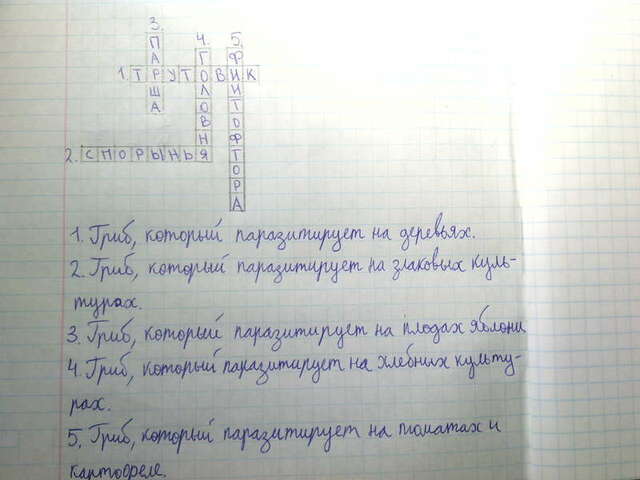 3. ПАРША
4. ГОЛОВНЯ
5. ФИИТОФТОРА
1. ТРУТОВИК
2. СПОРЫНЬЯ
1. Гриб, который паразитирует на деревьях.
2. Гриб, который паразитирует на злаковых куль-
турах.
3. Гриб, который паразитирует на плодах яблони
4. Гриб, который паразитирует на хлебных культу-
рах.
5. Гриб, который паразитирует на томатах и
картофеле.